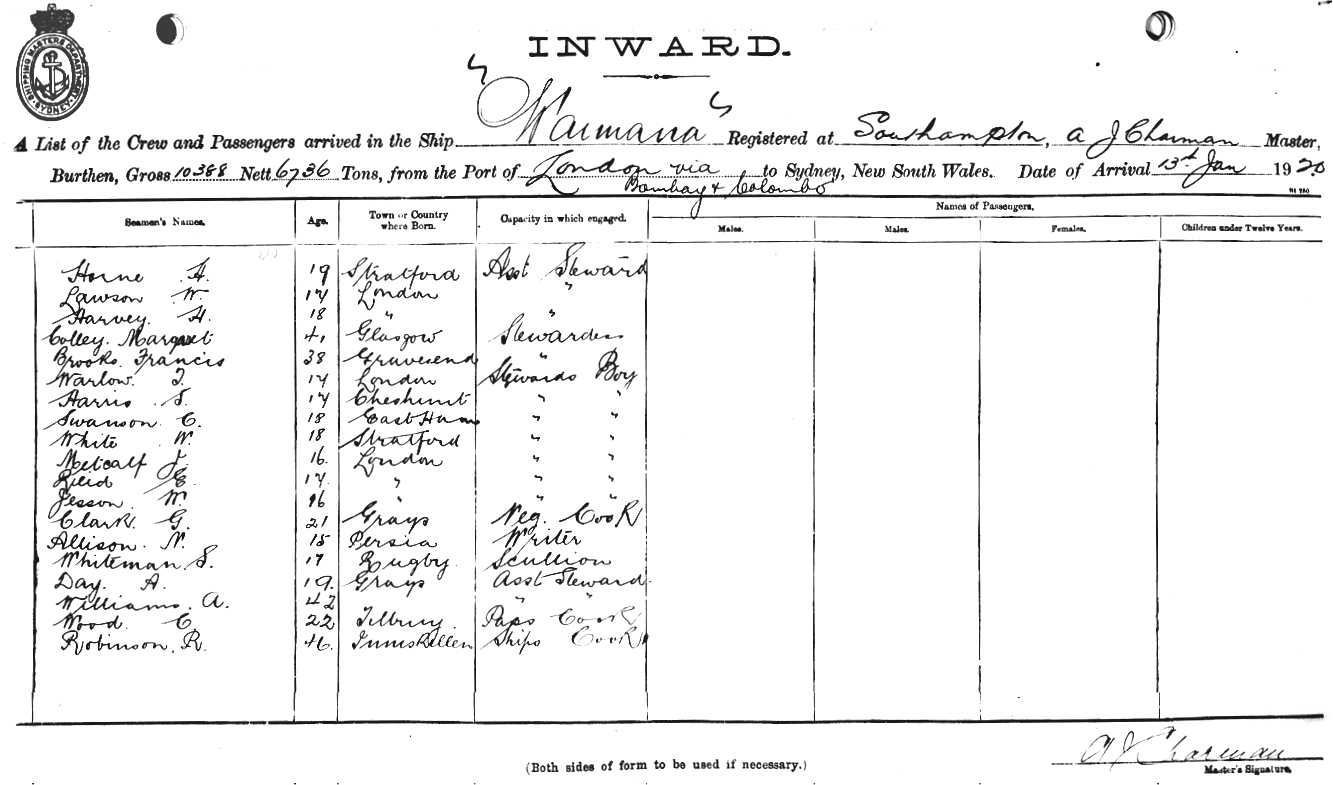 SHIPPING MASTERS DEPARTMENT SYDNEY
INWARD.
A List of the Crew and Passengers arrived in the Ship "Waimana" Registered at Southampton, A J Charman Master,
Burthen, Gross 10388 Nett 6736 Tons, from the Port of London via Bombay & Colombo to Sydney, New South Wales. Date of Arrival 13th Jan 1920
Seamen's Names. Age. Town or Country where Born. Capacity in which engaged. Names of Passengers.
Males. Males. Females. Children under Twelve Years.
Horne H. 19 Stratford Asst Steward
Lawson W. 17 London "
Harvey. H. 18 " "
Colley. Margaret 41 Glasgow Stewardess
Brooks. Francis 38 Gravesend "
Warlow. 17 London Stewards Boy
Harris S. 17 Cheshunt " "
Swanson C. 18 East Ham " "
White W. 18 Stratford " "
Metcalf J. 16 London " "
Reid E. 17. " " "
Jesson W. 16 " " "
Clark. G. 21 Grays Veg. Cook
Allison. N. 15 Persia Writer
Whiteman S. 17 Rugby. Scullion
Day. A. 19. Grays Asst Steward.
Williams. A. 42 " " "
Wood. C. 22 Tilbury. Cook
Robinson. R. 46. Inniskillen Ships Cook
A J Charman
(Both sides of form to be used if necessary.)
Master's Signature.